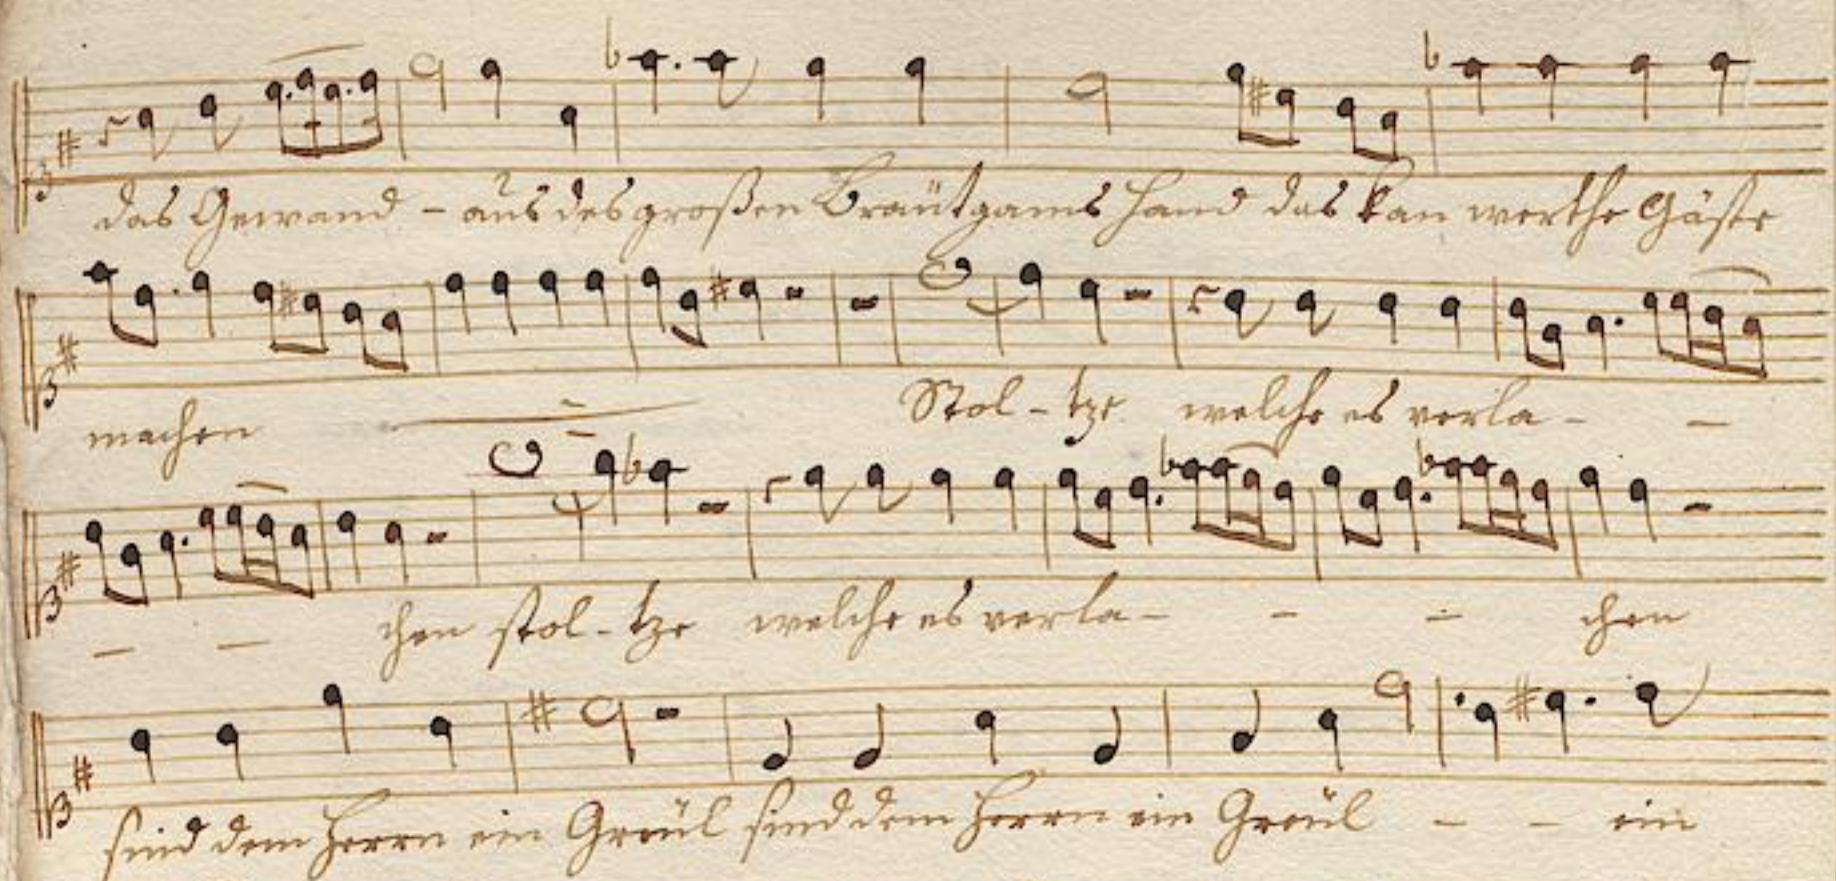 das Gewand - aus des großen Bräutgams Hand das kan werthe Gäste
machen Stol - tze welche es verla - -
- - chen stol - tze welche es verla - - - chen
sind dem Herrn ein Greül sind dem Herrn ein Greül - - ein